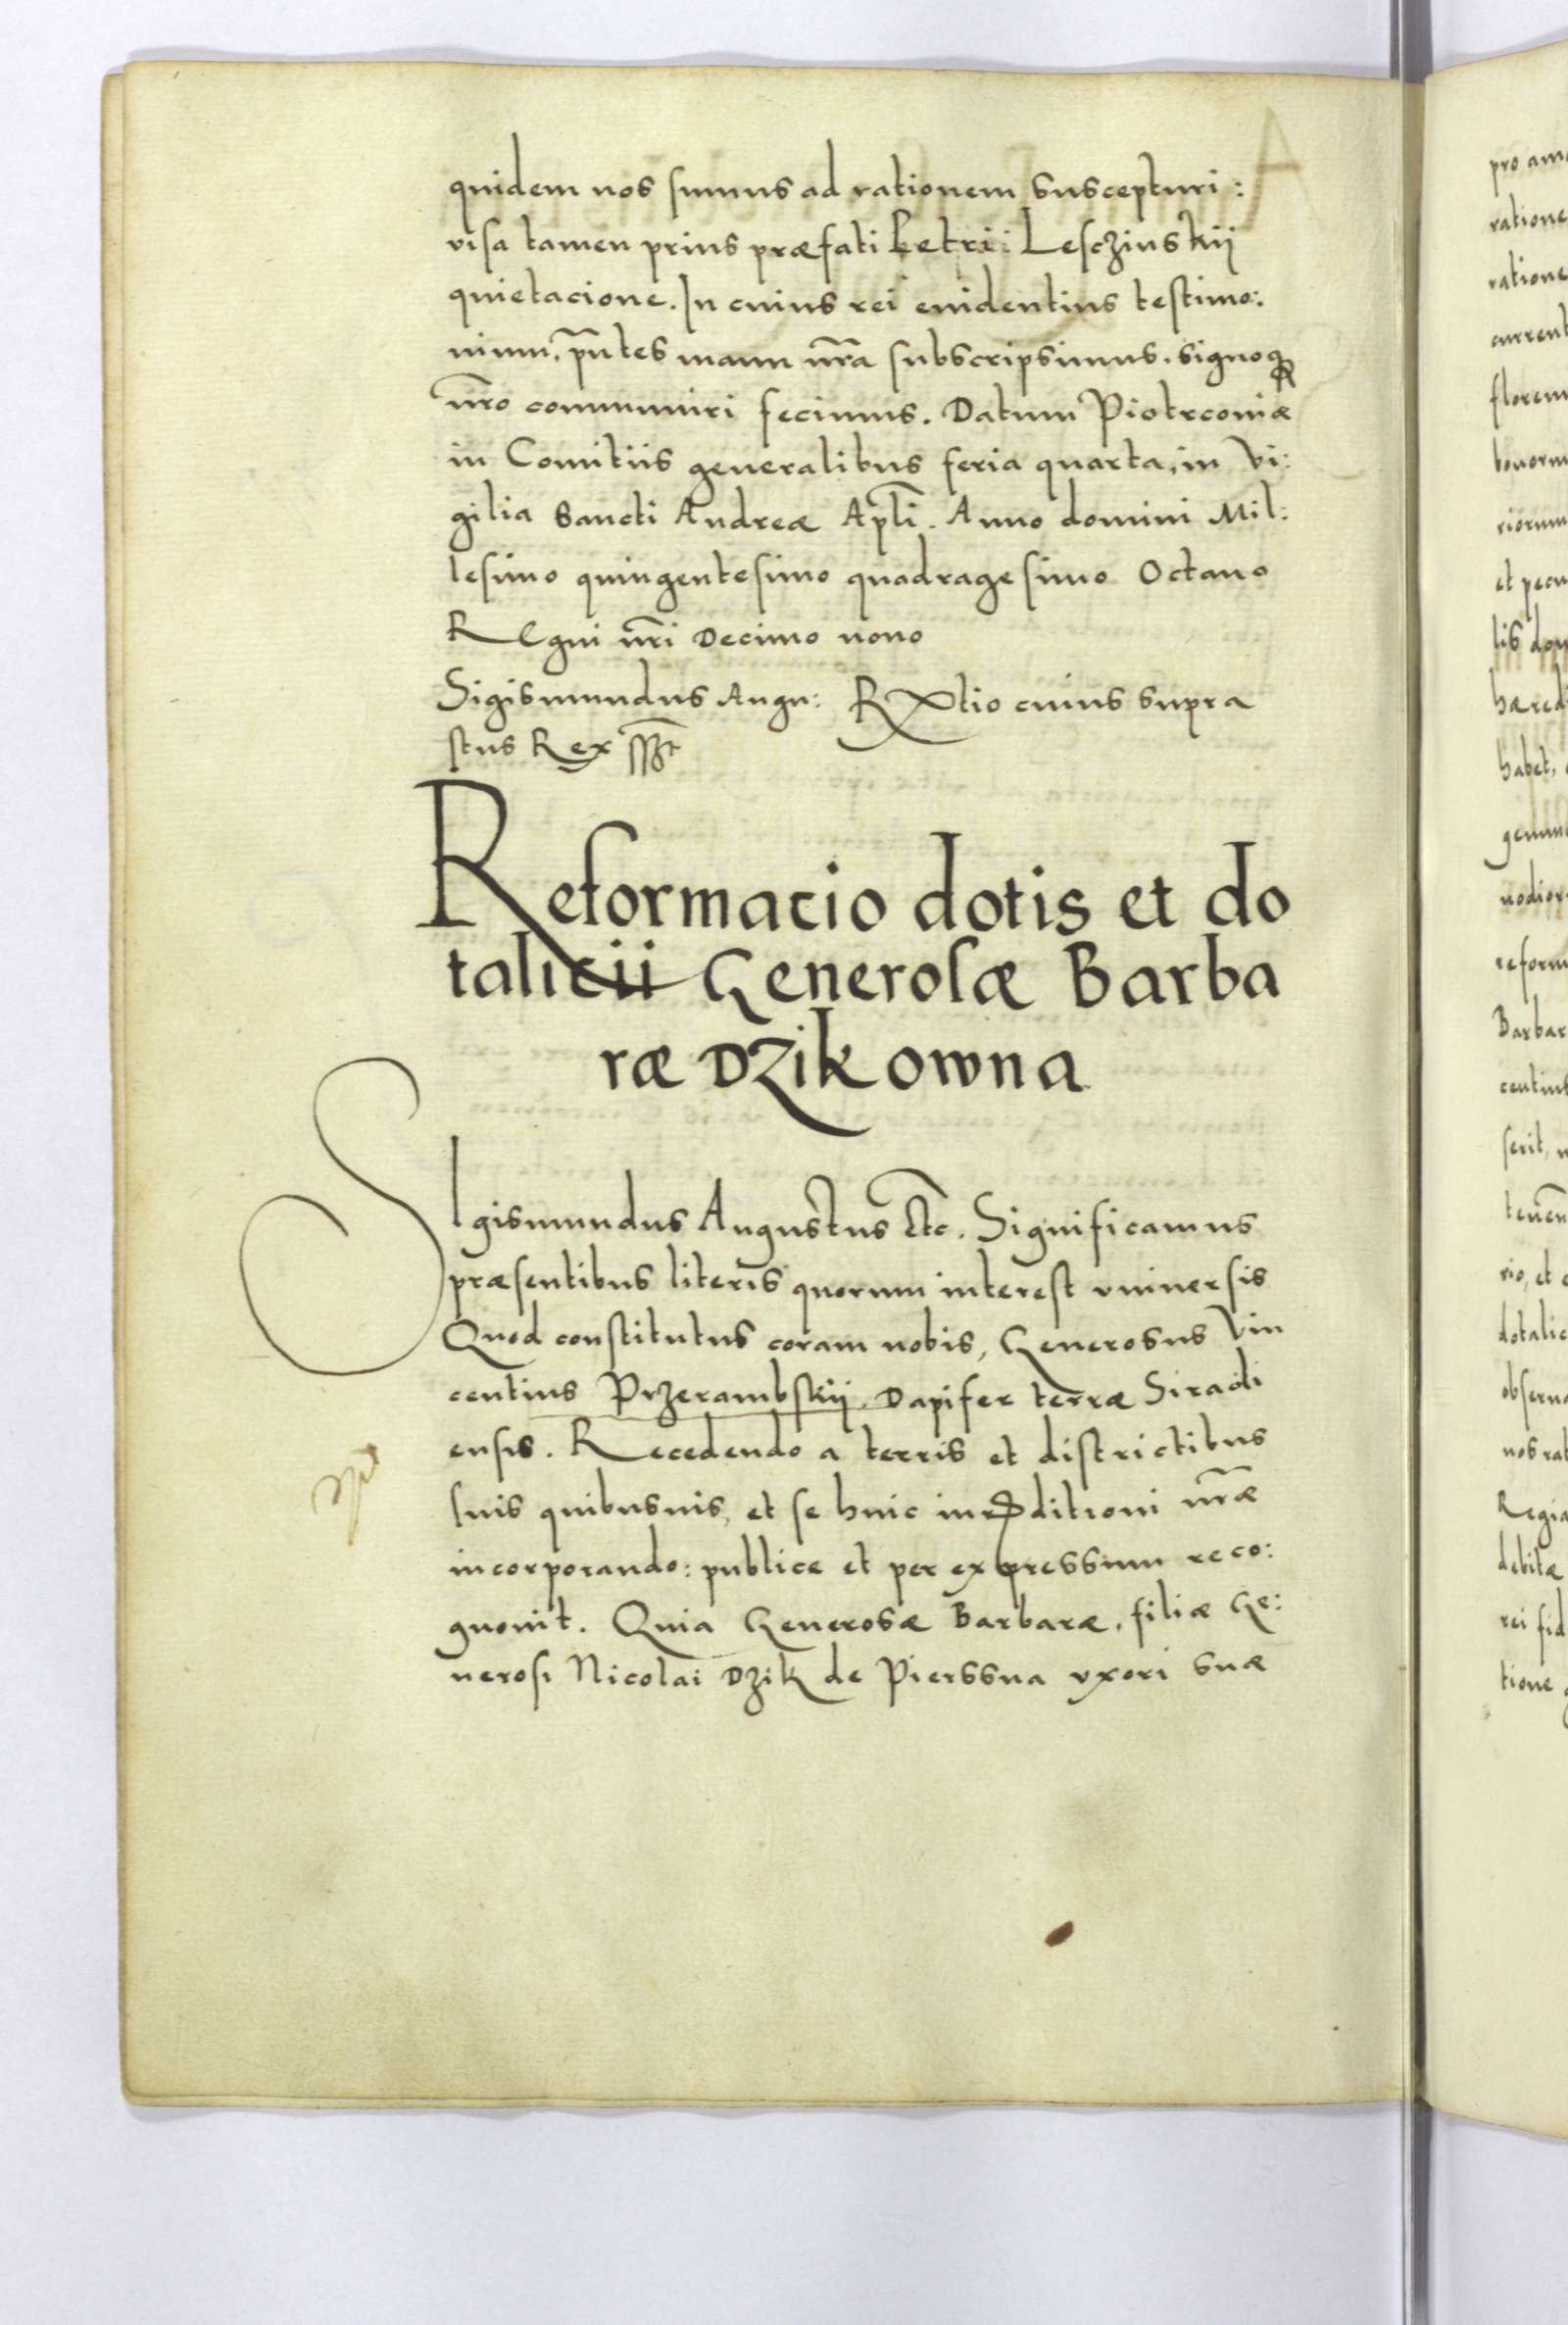 quidem nos sumus ad rationem suscepturi:
visa tamen prius præfati Petri: Lesczinskii
quietacione. In cuius rei euidentius testimo:
nium, pñtes manu ñra subscripsimus. signoq
ñro communiri fecimus. Datum Piotrcouiæ
in Comitiis generalibus feria quarta, in Vi:
gilia Sancti Andreæ Apli. Anno domini Mil:
lesimo quingentesimo quadragesimo Octauo
REgni ñri Decimo nono
Sigismundus Augu: Rtio cuius supra
stus Rex sst
Reformacio dotis et do
talicii Generosæ Barba
ræ Dzikowna
SIgismundus Augustus Etc. Significamus
præsentibus literis quorum interest vniuersis
Quod constitutus coram nobis, Generosus Vin
centius Przerambskij Dapifer terræ Siradi
ensis. Recedendo a terris et districtibus
suis quibusuis, et se huic inrditioni ñræ
incorporando: publice et per expressum reco:
gnouit. Quia Generosæ Barbaræ, filiæ Ge:
nerosi Nicolai Dzik de Pierssna vxori suæ
pro am
ratione
ratione
current
florem
bonorum
riorum
et pecu
lis dom
hæred
habet,
genuin
uodior
reform
Barbar
centius
serit,
teneñ
rio, et
dotalic
obserua
nos rat
Regia
debitæ
rei fid
tione